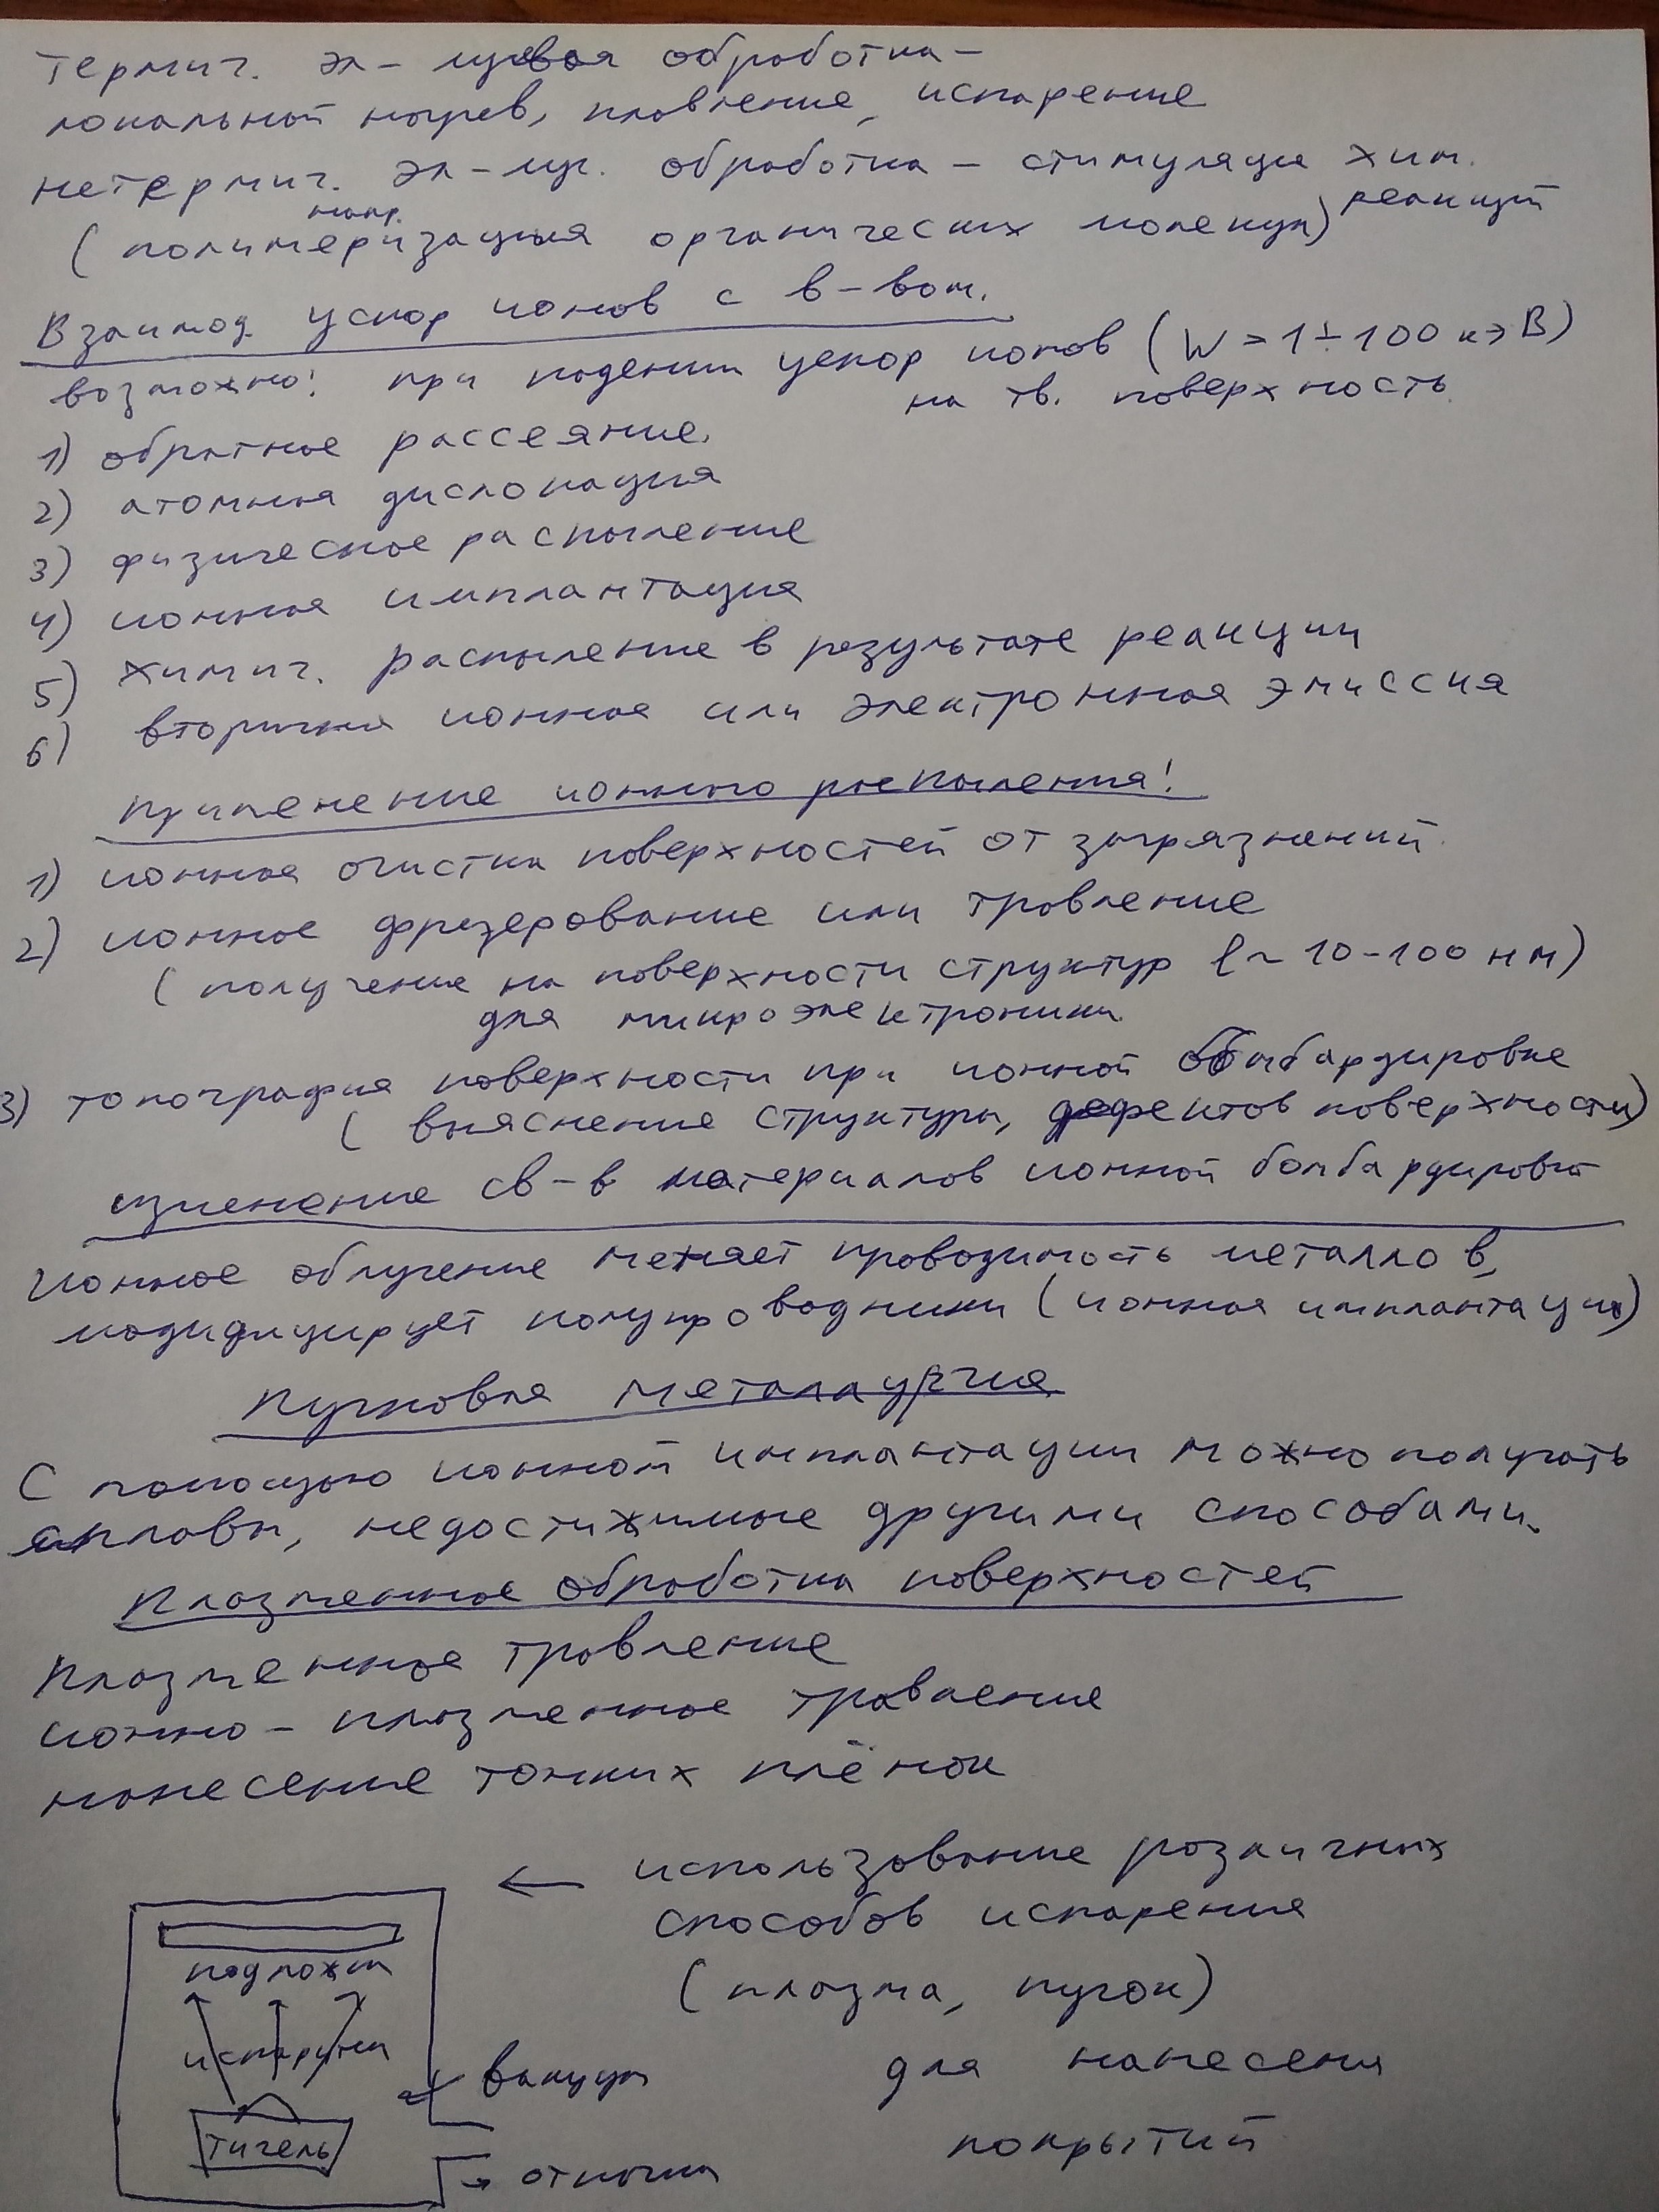 термич. эл-лучевая обработка –
локальный нагрев, плавление, испарение
нетермич. эл-луч. обработка – стимуляция хим. реакций
напр.
(полимеризация органических молекул)
Взаимод. ускор ионов с в-вом.
возможно: при падении ускор ионов (W = 1 ÷ 100 кэВ)
на тв. поверхность
1) обратное рассеяние.
2) атомная дислокация
3) физическое распыление
4) ионная имплантация
5) химич. распыление в результате реакции
6) вторичная ионная или электронная эмиссия
Применение ионного распыления:
1) ионная очистка поверхностей от загрязнений.
2) ионное фрезерование или травление
(получение на поверхности структур l ~ 10-100 нм)
для микроэлектроники.
3) топография поверхности при ионной бомбардировке
(выяснение структуры, дефектов поверхности)
изменение св-в материалов ионной бомбардировкой
Ионное облучение меняет проводимость металлов,
модифицирует полупроводники (ионная имплантация)
Пучковая металлургия
С помощью ионной имплантации можно получать
сплавы, недостижимые другими способами.
Плазменное обработка поверхностей
Плазменное травление
ионно – плазменное травление
нанесение тонких плёнок
← использование различных
способов испарения
(плазма, пучок)
для нанесения
покрытий
подложка
испарители
тигель
вакуум
→ откачка